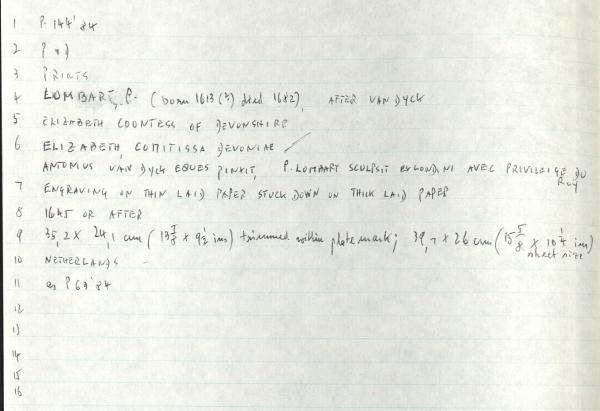 1 P. 144'84
2 P
3 PRINTS
4 LOMBART, P. (born 1613 (?) died 1682), AFTER VAN DYCK
5 ELIZABETH COUNTESS OF DEVONSHIRE
6 ELIZABETH, COMITISSA DEVONIAE /
ANTONIUS VAN DYCK EQUES PINXIT, P. LOMBART SCULPSIT LONDINI AVEC PRIVILEIGE DU
ROY
7 ENGRAVING ON THIN LAID PAPER STUCK DOWN ON THICK LAID PAPER
8 1645 OR AFTER
9 35,2 X 24,1 cm (13 7/8 x 9 1/2 ins) trimmed within plate mark; 39,7 x 26 cm (15 5/8 x 10 1/4 ins)
sheet size
10 NETHERLANDS -
11 as P 63'84
12
13
14
15
16